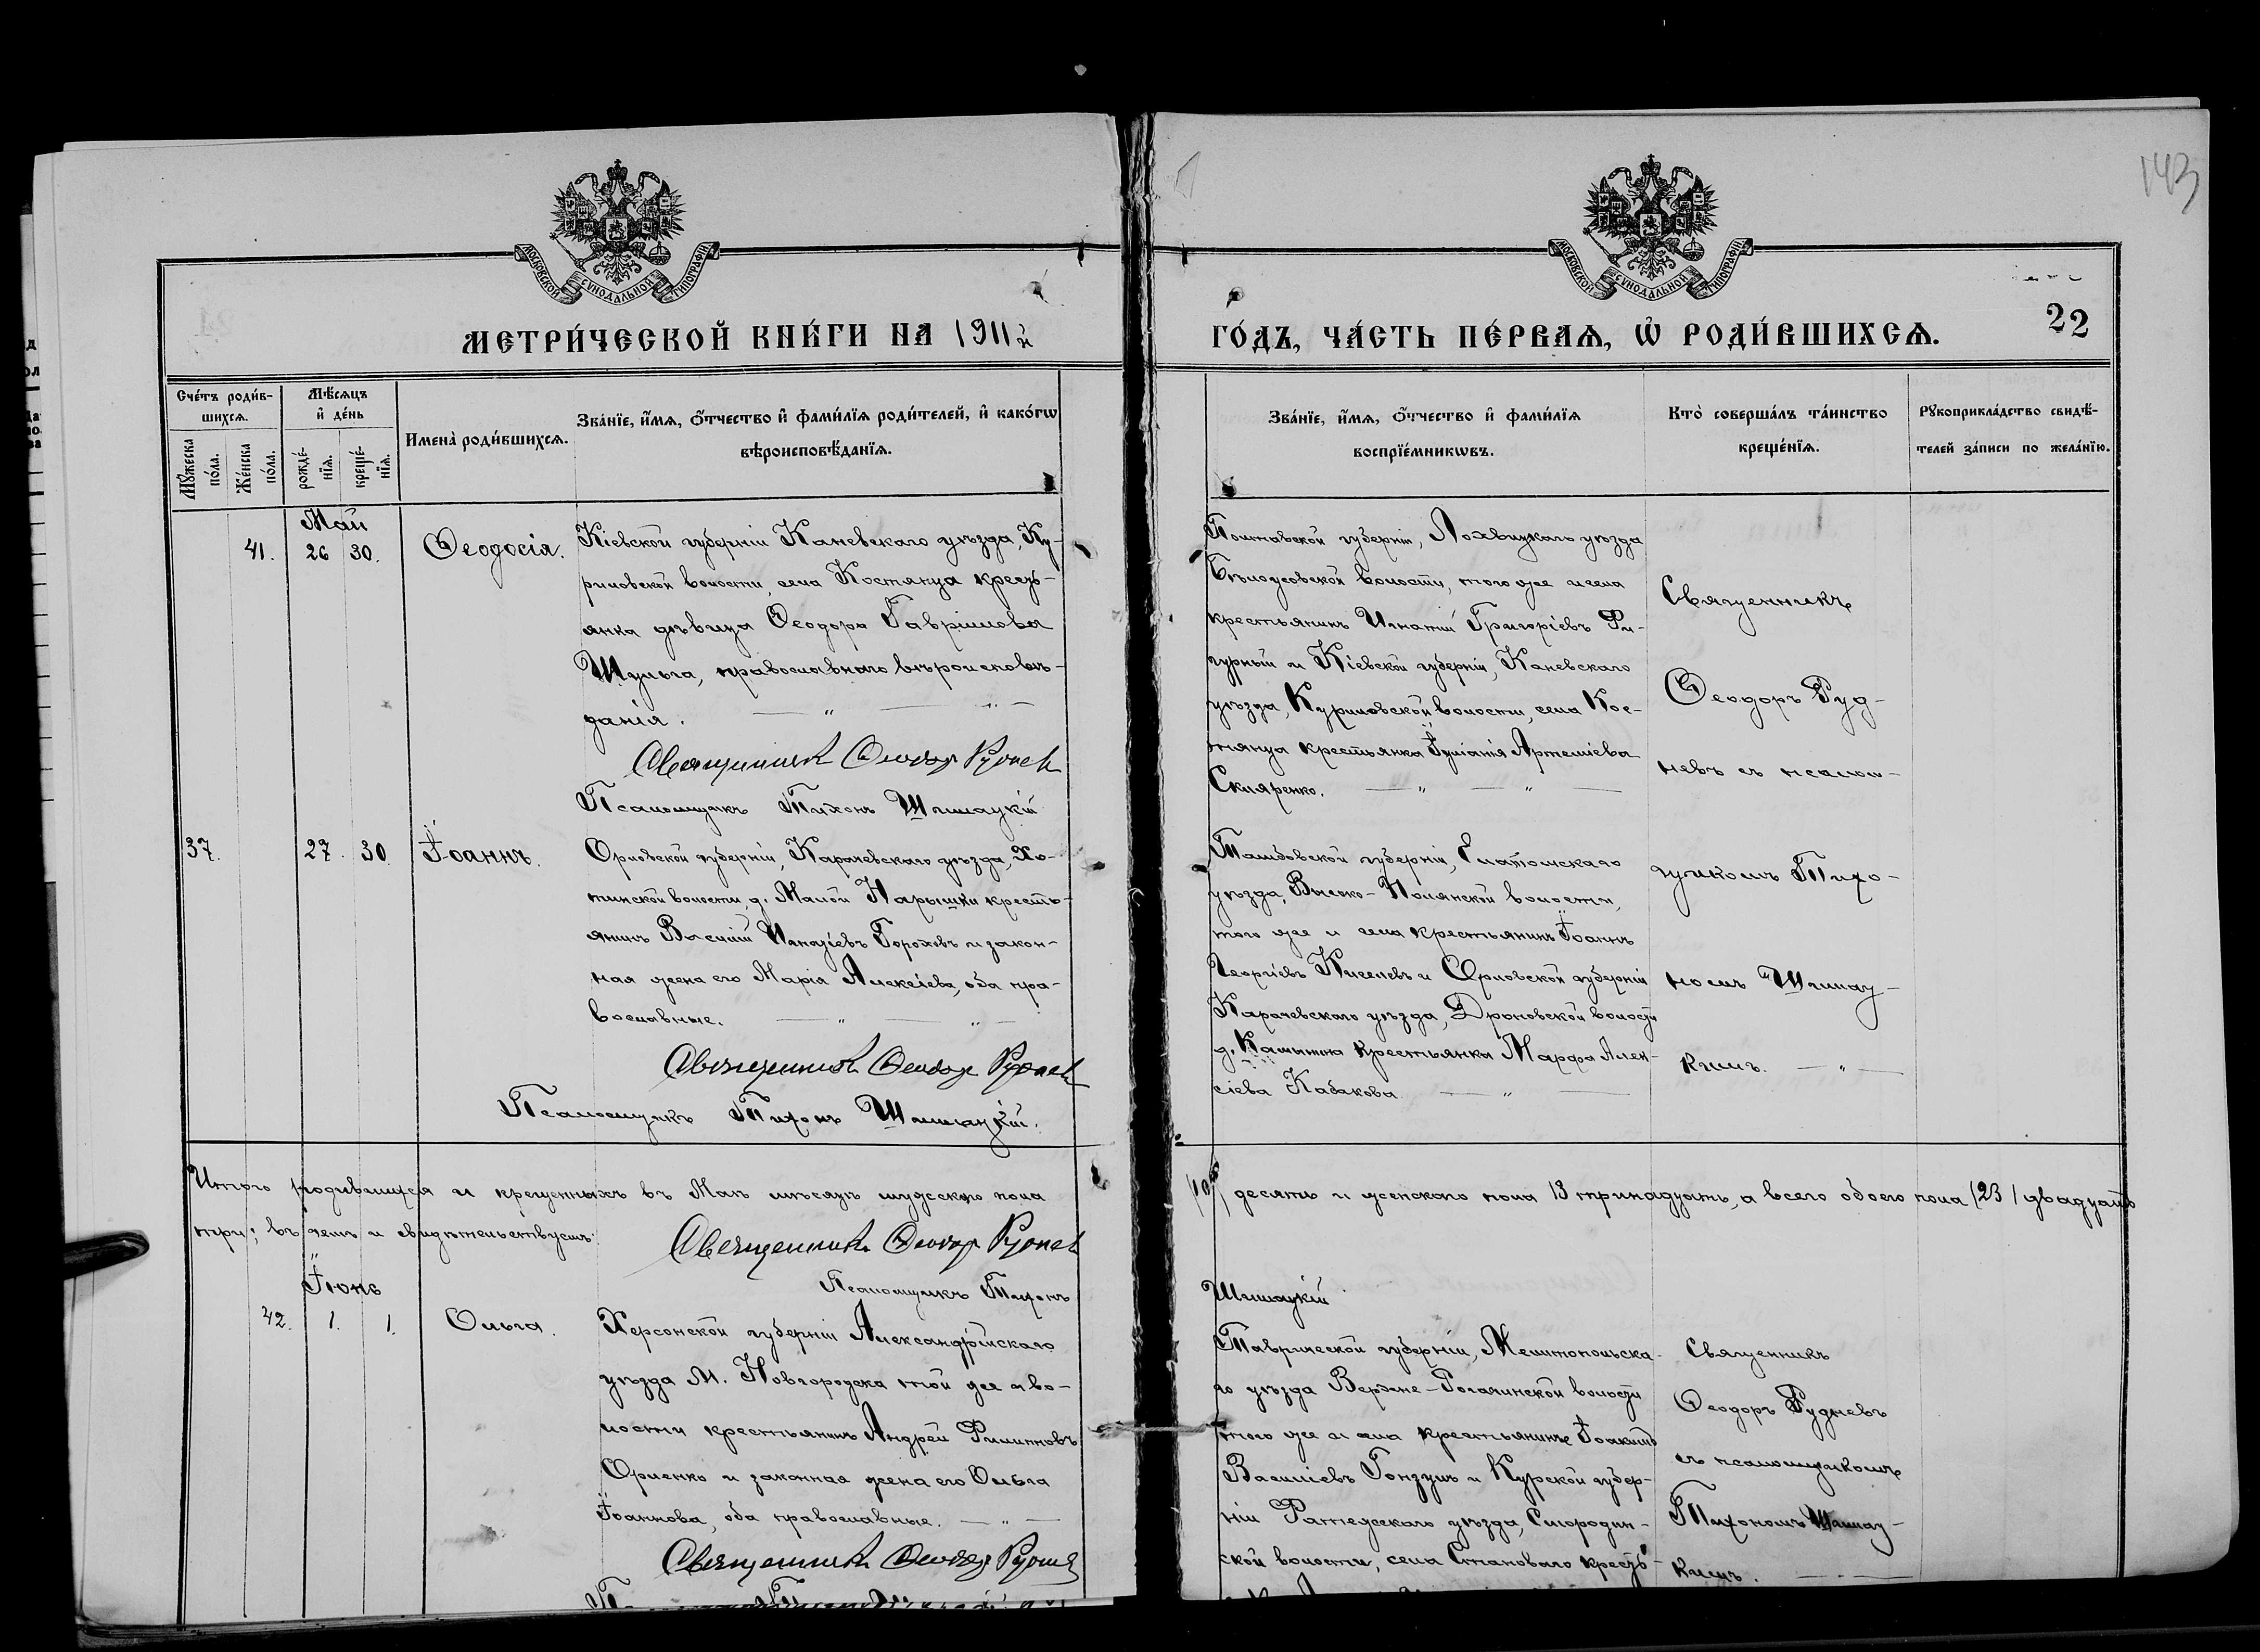 143
МОСКОВСКОЙ СѴНОДАЛЬНОЙ ТИПОГРАФІИ
МОСКОВСКОЙ СѴНОДАЛЬНОЙ ТИПОГРАФІИ
МЕТРИ́ЧЕСКОЙ КНИ́ГИ НА 1911й
ГО́ДЪ, ЧА́СТЬ ПЕ́РВАѦ, Ѡ҆ РОДИ́ВШИХСѦ. 22
Сче́тъ роди́в-
шихсѧ.
Мꙋ́жеска по́ла.
Же́нска по́ла.
Мѣ́сѧцъ
и҆ де́нь
рожде́-
нїѧ.
креще́-
нїѧ.
Имена̀ роди́вшихсѧ.
Зва́нїе, и҆́мѧ, ѻ҆́тчество и҆ фами́лїѧ роди́телей, и҆ како́гѡ
вѣроисповѣ́данїѧ.
Зва́нїе, и҆́мѧ, ѻ҆́тчество и҆ фами́лїѧ
воспрїе́мникѡвъ.
Кто̀ соверша́лъ та́инство
креще́нїѧ.
Рꙋкоприкла́дство свидѣ́-
телей за́писи по жела́нїю.
Май
41. 26 30. Ѳеодосія.
Кіевской губерніи Каневскаго уѣзда, Ку-
риловской волости, села Костянца кресть-
янка дѣвица Ѳеодора Гавріилова
Шульга, православнаго вѣроисповѣ-
данія.
Священникъ Ѳеодоръ Рудневъ
Псаломщикъ Тихонъ Шишацкій
Полтавской губерніи, Лохвицкаго уѣзда
Бѣлоусовской волости, того же и села
крестьянинъ Игнатій Григоріевъ Фи-
гурный и Кіевской губерніи, Каневскаго
уѣзда, Куриловской волости, села Кос-
тянца крестьянка Іуліанія Артеміева
Скляренко.
Священникъ
Ѳеодоръ Руд-
невъ съ псалом-
щикомъ Тихо-
номъ Шишац-
кимъ.
37. 27. 30. Іоаннъ.
Орловской губерніи, Карачевскаго уѣзда, Хо-
тинской волости, д. Малой Нарышки кресть-
янинъ Василій Игнатіевъ Гороховъ и закон-
ная жена его Марія Алексіева, оба пра-
вославные.
Священникъ Ѳеодоръ Рудневъ
Псаломщикъ Тихонъ Шишацкій.
Тамбовской губерніи, Елатомскаго
уѣзда, Высоко-Полянской волости,
того же и села крестьянинъ Іоаннъ
Георгіевъ Киселевъ и Орловской губерніи
Карачевскаго уѣзда, Дроновской волости
д. Камынина крестьянка Марфа Алек-
сіева Кабакова
Итого родившихся и крещенныхъ въ Маѣ мѣсяцѣ мужескаго пола /10/ десять и женскаго пола 13 тринадцать, а всего обоего пола /23/ двадцать
три; въ чемъ и свидѣтельствуемъ:
Священникъ Ѳеодоръ Рудневъ
Псаломщикъ Тихонъ Шишацкій
Іюнь
42. 1. 1. Ольга.
Херсонской губерніи Александрійскаго
уѣзда М. Новгородска той же и во-
лости крестьянинъ Андрей Филипповъ
Орленко и законная жена его Ольга
Іоаннова, оба православные.
Священникъ Ѳеодоръ Рудневъ
Таврической губерніи, Мелитопольска-
го уѣзда Верхне-Рогачинской волости
того же и села крестьянинъ Іоакимъ
Василіевъ Гонзушъ и Курской губер-
ніи Ратьскаго уѣзда, Смородин-
ской волости, села Становаго кресть-
Священникъ
Ѳеодоръ Рудневъ
съ псаломщикомъ
Тихономъ Шишац-
кимъ.